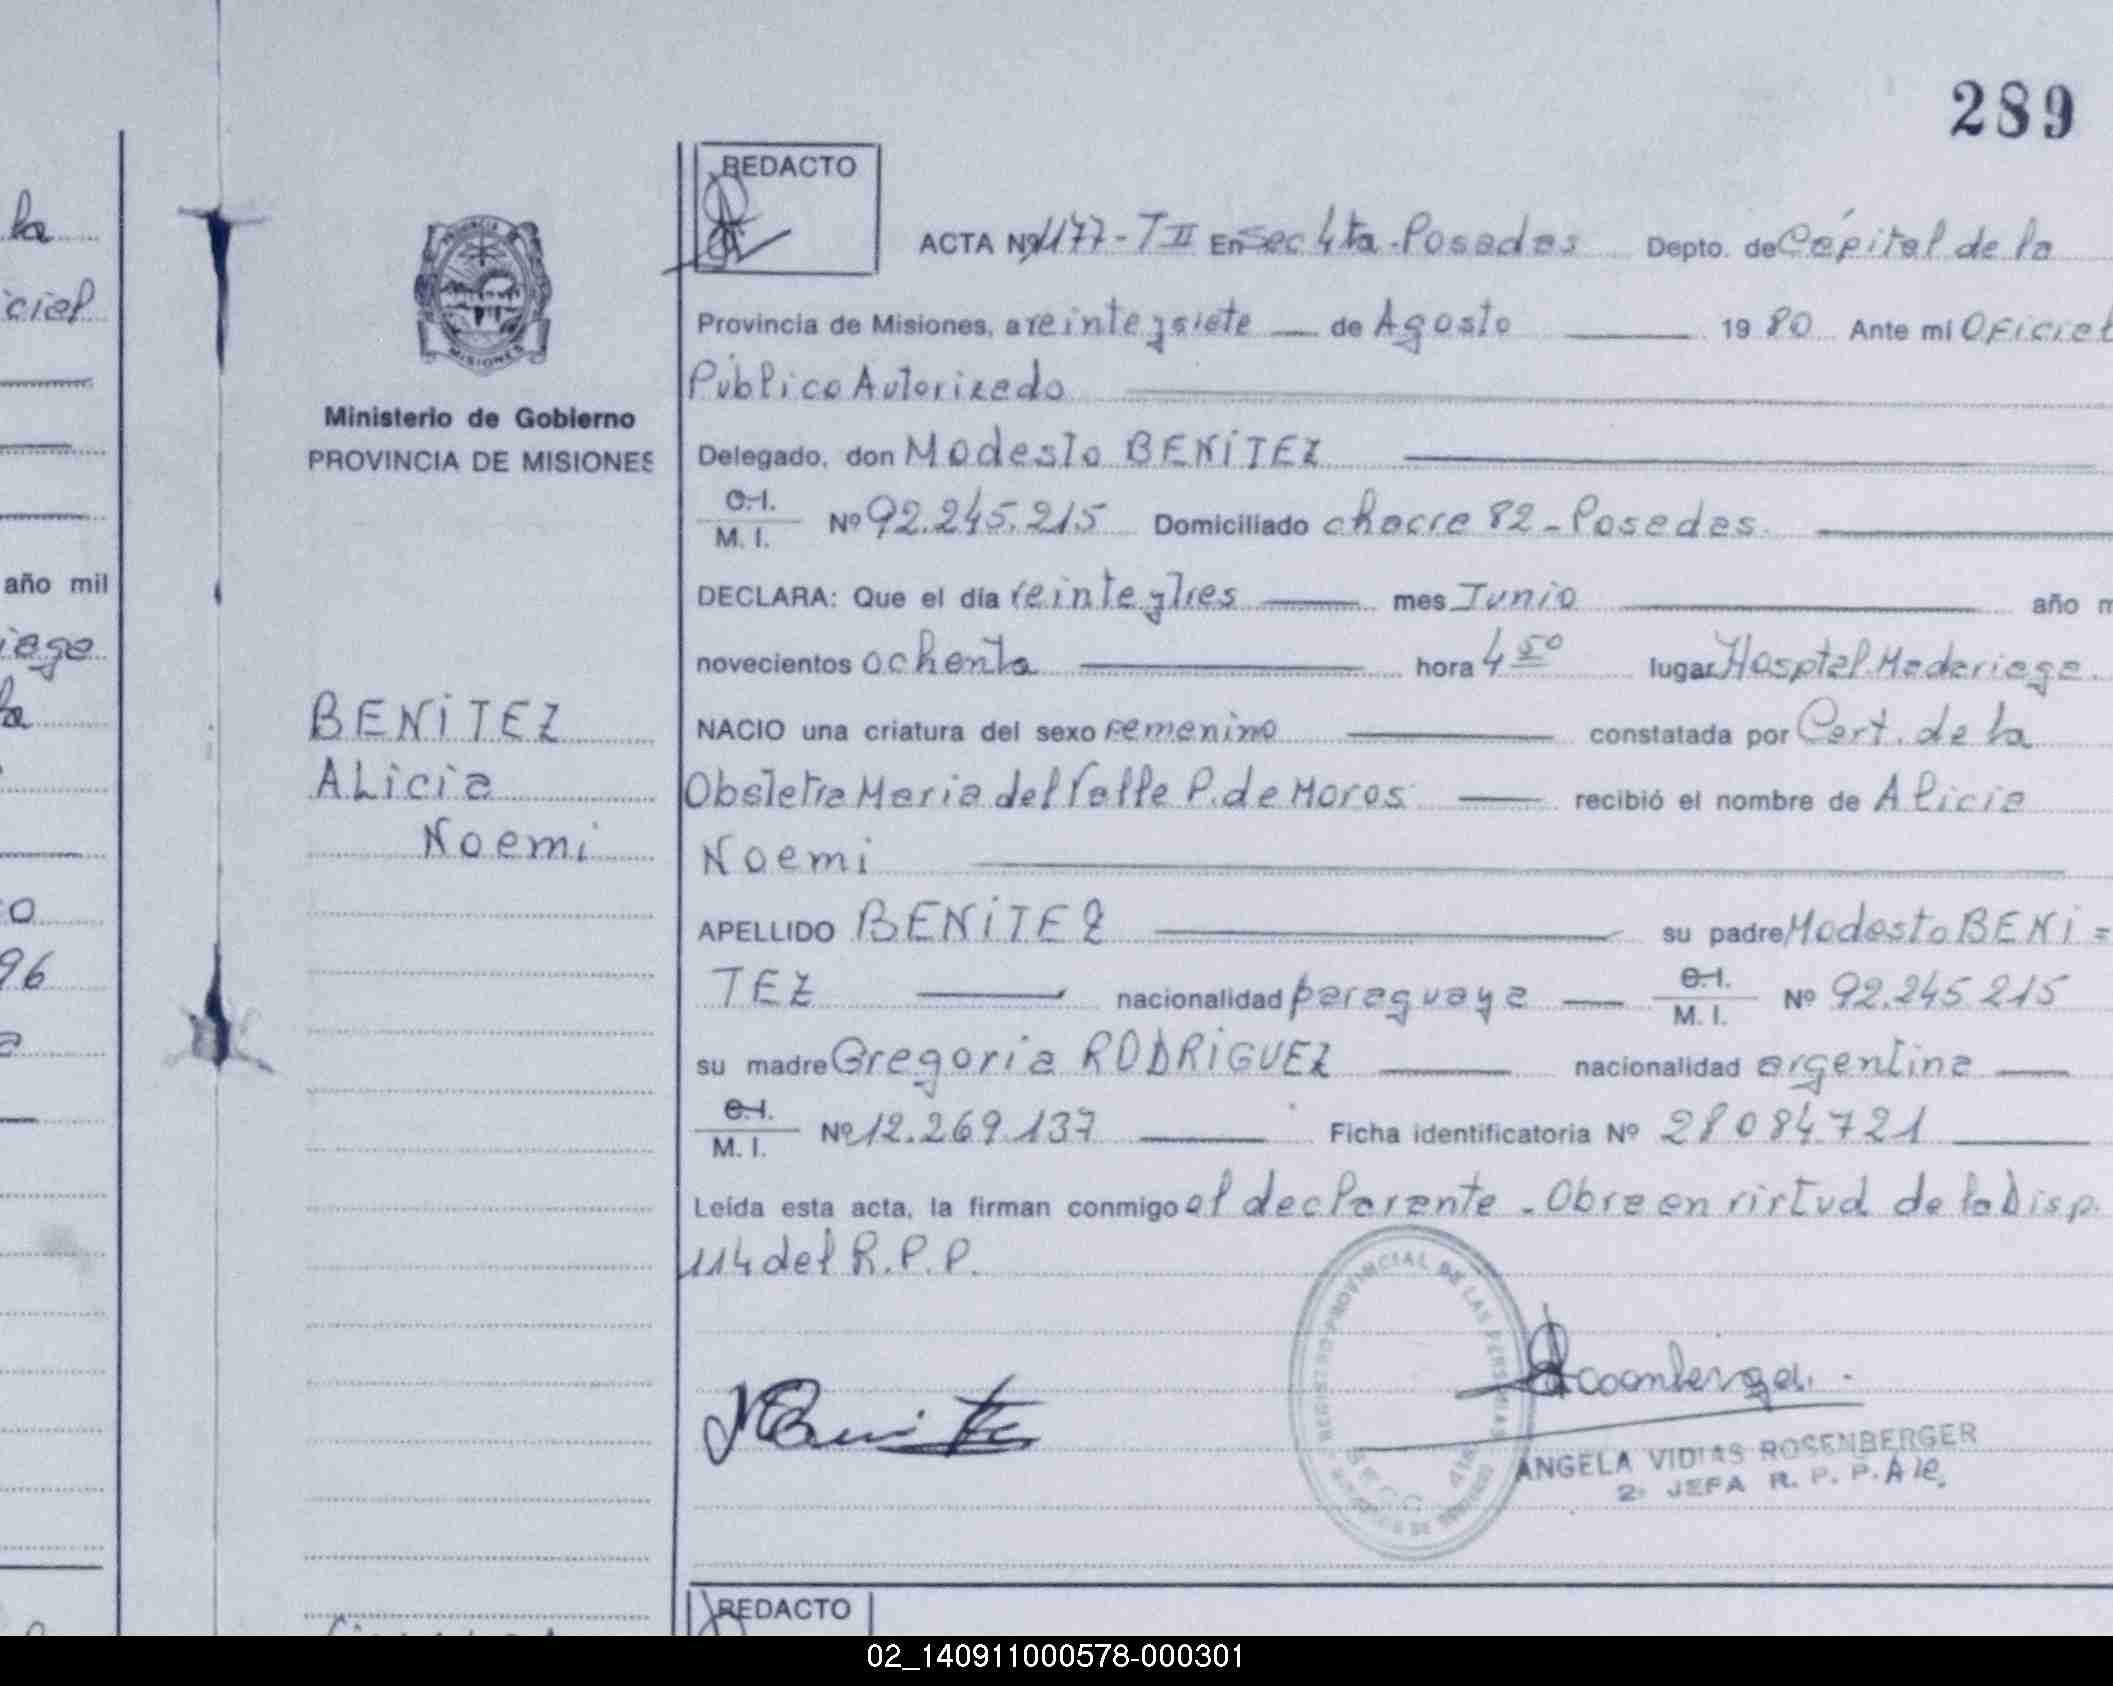 289
REDACTO
ACTA Nº 1177-T II En Sec 4ta-Posadas Depto. de Cápital de la
Provincia de Misiones, a veinteysiete de Agosto 19 80 Ante mi Oficial
Público Autorizado
Delegado, don Modesto BENiTEZ
C.I.
M. I. Nº 92.245.215 Domiciliado chacra 82-Posadas.
DECLARA: Que el día veinteytres mes Junio año m
novecientos ochenta hora 4 50 lugar Hosptal Madariaga.
NACIO una criatura del sexo femenino constatada por Cert. de la
Obstetra Maria del Valle P. de Moros recibió el nombre de Alicia
Noemi
APELLIDO BENiTEZ su padre Modesto BENi=
TEZ nacionalidad paraguaya C.I.
M. I. Nº 92.245.215
su madre Gregoria RODRiGUEZ nacionalidad argentina
C.I.
M. I. Nº 12.269.137 Ficha identificatoria Nº 28084721
Leída esta acta, la firman conmigo el declarante-Obra en virtud de la Disp.
114 del R.P.P.
REGISTRO PROVINCIAL DE LAS PERSONAS
SECC. 4ta
ANGELA VIDIAS ROSENBERGER
2º JEFA R. P. P. A/c.
REDACTO
PROVINCIA DE
MISIONES
Ministerio de Gobierno
PROVINCIA DE MISIONES
BENiTEZ
ALicia
Noemi
la
cial
año mil
iaga
la
o
96
a
02_140911000578-000301